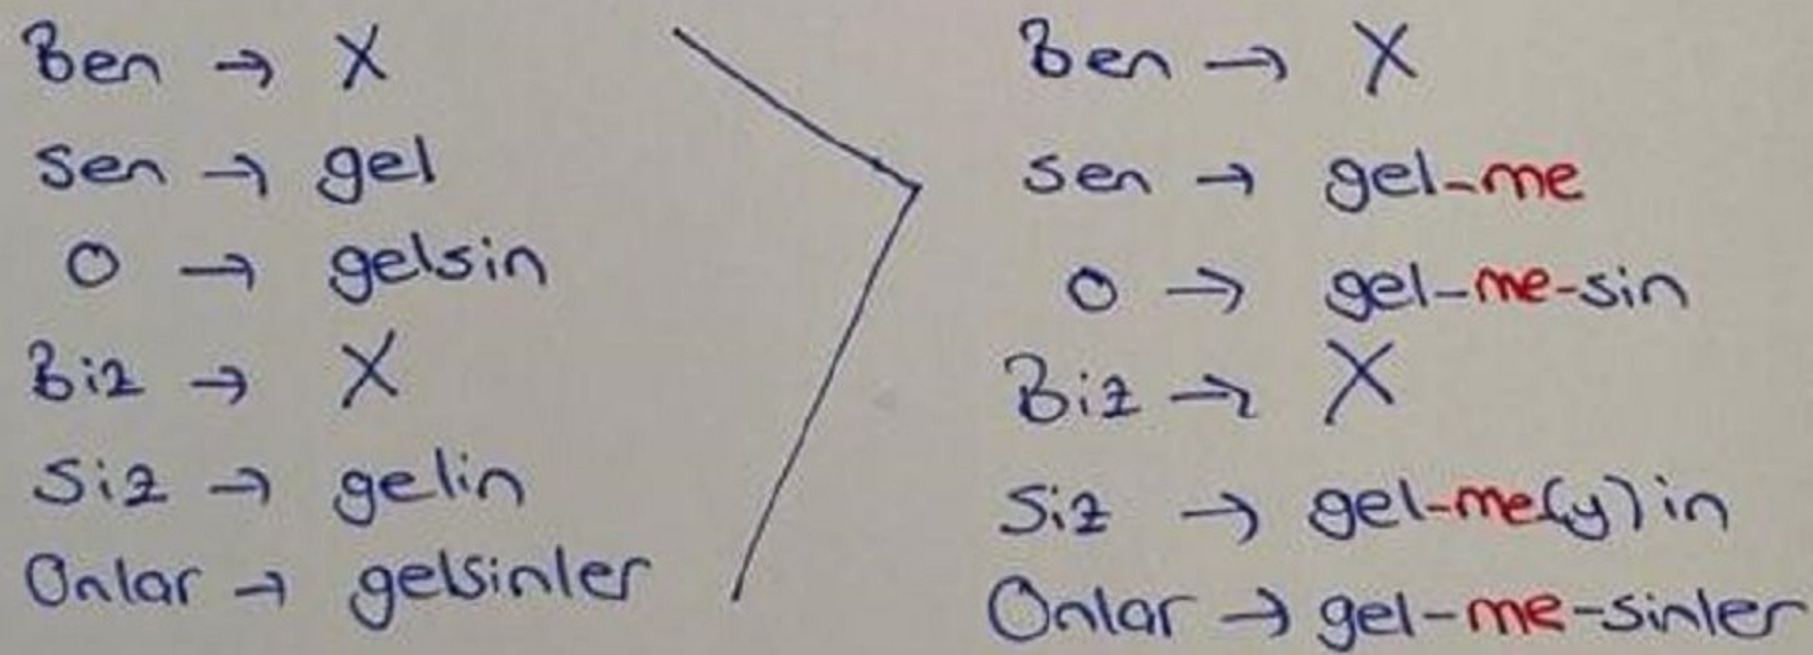 Ben → X
Sen → gel
O → gelsin
Biz → X
Siz → gelin
Onlar → gelsinler
Ben → X
Sen → gel-me
O → gel-me-sin
Biz → X
Siz → gel-me(y)in
Onlar → gel-me-sinler